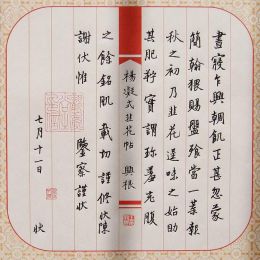 晝寢乍興輖飢正甚忽蒙
簡翰猥賜盤飧當一葉報
秋之初乃韭花逞味之始助
其肥羜實謂珍羞充腹
楊凝式韭花帖
之餘銘肌載切謹修狀陳
謝伏惟 鑒察謹狀
七月十一日 狀